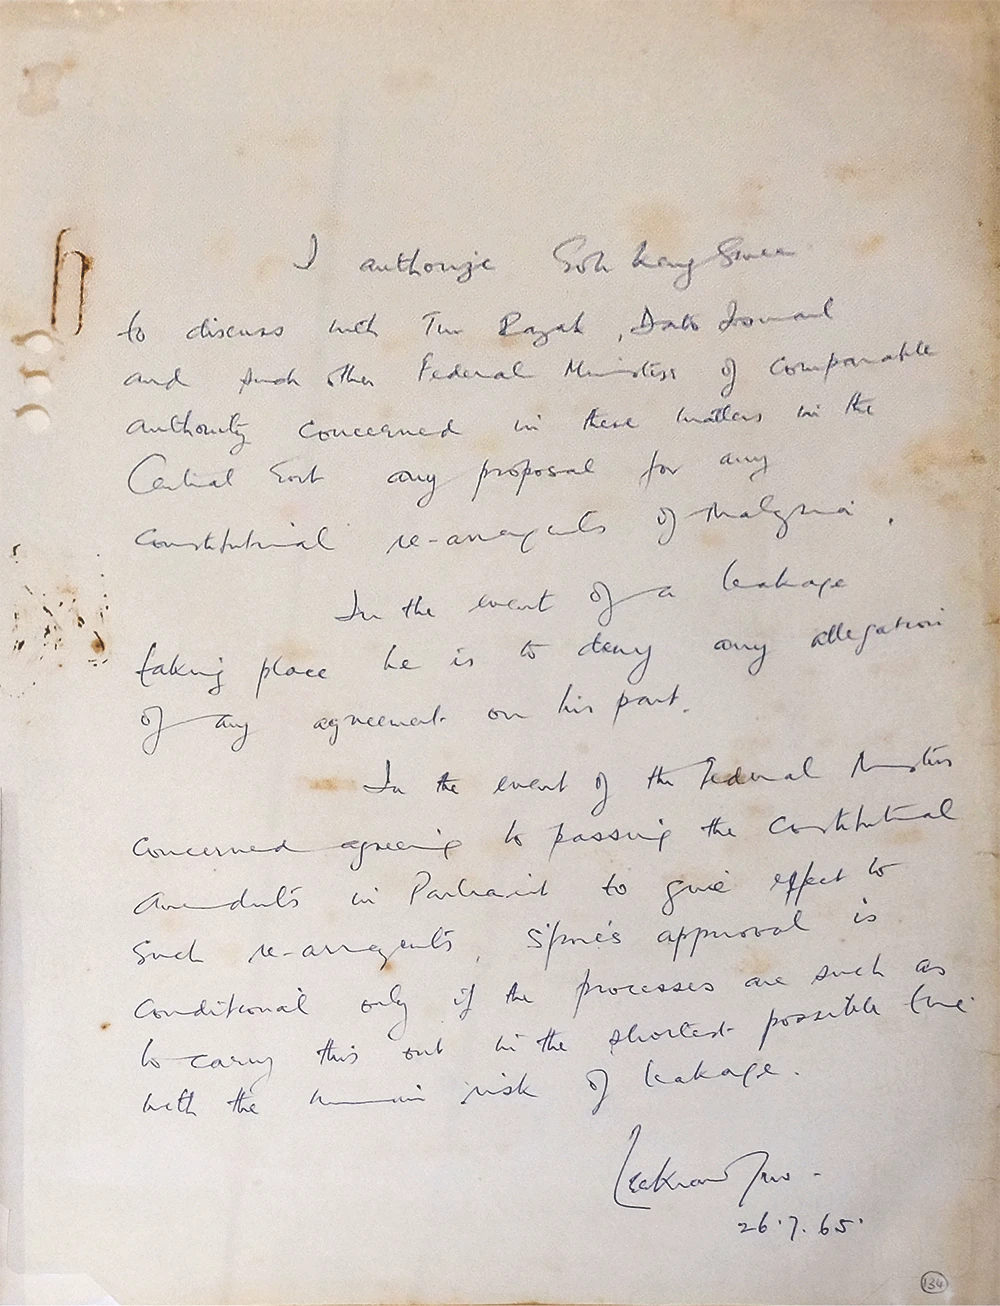 I authorize Goh Keng Swee
to discuss with Tun Razak, Dato Ismail
and such other Federal Ministers of comparable
authority concerned in these matters in the
Central Govt any proposal for any
constitutional re-arrangements of Malaysia.
In the event of a leakage
taking place he is to deny any allegation
of any agreement on his part.
In the event of the Federal Ministers
concerned agreeing to passing the constitutional
amendments in Parliament to give effect to
such re-arrangements, S'pore's approval is
conditional only if the processes are such as
to carry this out in the shortest possible time
with the minimum risk of leakage.
Lee Kuan Yew
26.7.65.
134